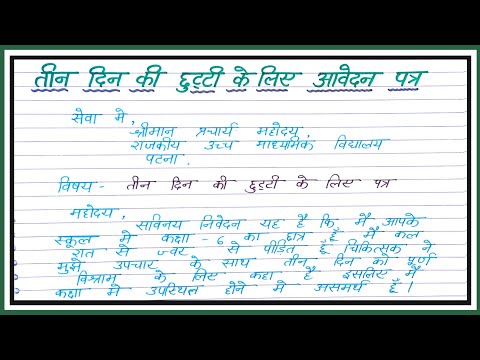 तीन दिन की छुट्टी के लिए आवेदन पत्र
सेवा मे,
श्रीमान प्रचार्य महोदय,
राजकीय उच्च माध्यमिक विद्यालय
पटना.
विषय - तीन दिन की छुट्टी के लिए पत्र
महोदय,
सविनय निवेदन यह है कि मैं आपके
स्कूल मे कक्षा - 6 का छात्र हूँ मैं कल
रात से ज्वर से पीडित हूँ चिकित्सक ने
मुझे उपचार के साथ तीन दिन का पूर्ण
विश्राम के लिए कहा है इसलिए मैं
कक्षा मे उपस्थित होने मे असमर्थ हूँ।